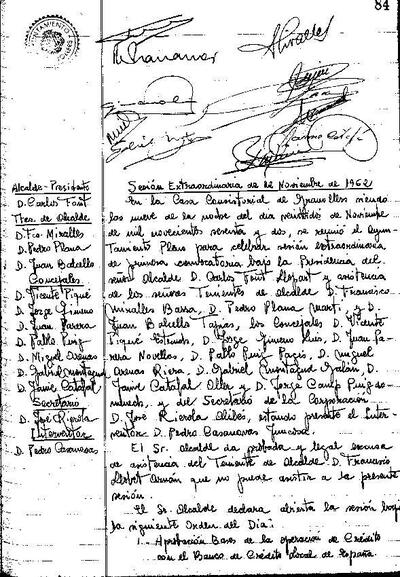 84
Alcalde-Presidente
D. Carlos Font
Ttes. de Alcalde
D. Fco. Miralles
D. Pedro Plana
D. Juan Batallo
Concejales
D. Vicente Piqué
D. Jorge Gimeno
D. Juan Parera
D. Pablo Puig
D. Miguel Arenas
D. Gabriel Muntagud
D. Jaime Catafal
Secretario
D. José Rierola
Interventor
D. Pedro Casanovas
Sesión Extraordinaria de 22 Noviembre de 1962
En la Casa Consistorial de Granollers siendo
las nueve de la noche del día veintidos de Noviembre
de mil novecientos sesenta y dos, se reunió el Ayun-
tamiento Pleno para celebrar sesión extraordinaria
de primera convocatoria bajo la Presidencia del
señor Alcalde D. Carlos Font Llopart y asistencia
de los señores Tenientes de Alcalde D. Francisco
Miralles Barsa, D. Pedro Plana Martí, y D.
Juan Tapias, los Concejales D. Vicente
Piqué D. Jorge Gimeno D. Juan Pa-
rera Novellas, D. Pablo Puig Pagés, D. Miguel
Arenas Riera, D. Gabriel Muntagud Galán, D.
Jaime Catafal Oller y D. Jorge Camp Puigdo-
menech, y del Secretario de la Corporación
D. José Rierola estando presente el Inter-
ventor D. Pedro Casanovas
El Sr. Alcalde da probada y legal excusa
de asistencia del Teniente de Alcalde D. Francisco
Llobet que no puede asistir a la presente
sesión.
El Sr. Alcalde declara abierta la sesión bajo
la siguiente Orden del Día:
1.- Aprobación Bases de la operación de Crédito
con el Banco de Crédito Local de España.